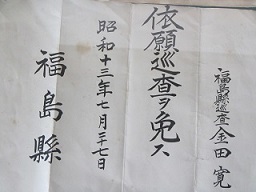 福島縣巡査金田寛
依願巡査ヲ免ス
昭和十三年七月三十七日
福島縣